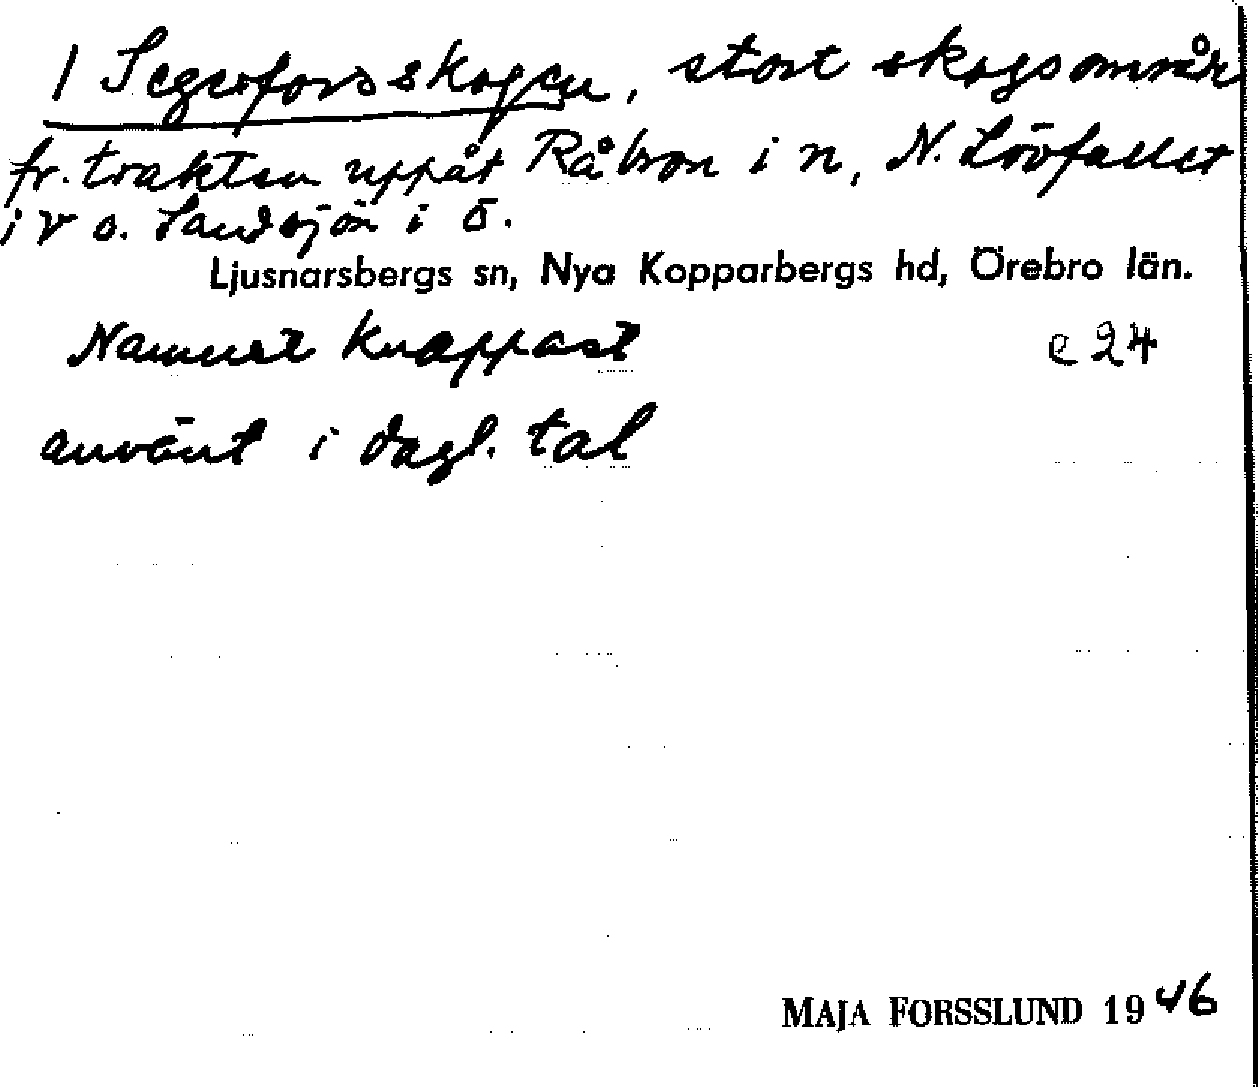 / Segerforsskogen, stort skogsområde
fr. trakten uppåt Råbron i n, N. Lövfallet
i v o. Sandsjön i ö.
Ljusnarsbergs sn, Nya Kopparbergs hd, Örebro län.
Namnet knappast
c 24
använt i dagl. tal
MAJA FORSSLUND 1946